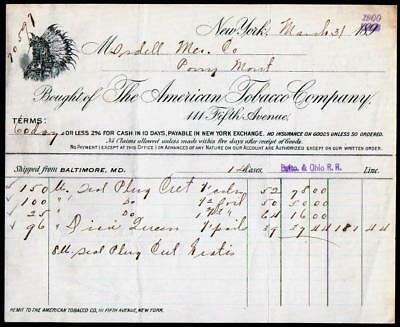 20597
1900
New York, March 31 189
M Lordell Mec. Co
Pony Mont
Bought of The American Tobacco Company.
111 Fifth Avenue.
TERMS:
60 day OR LESS 2% FOR CASH IN 10 DAYS, PAYABLE IN NEW YORK EXCHANGE. NO INSURANCE ON GOODS UNLESS SO ORDERED.
No Claims allowed unless made within five days after receipt of Goods.
NO PAYMENT (EXCEPT AT THIS OFFICE) OR ADVANCES OF ANY NATURE ON OUR ACCOUNT ARE AUTHORIZED EXCEPT ON OUR WRITTEN ORDER.
Shipped from BALTIMORE, MD. Cases, Balto. & Ohio R. R. Line.
150 lb Seal Plug Cut 52 78 00
100 " Do foil 50
25 " Do 64 16 00
96 " Dixie Queen pails 39 37 44 181 44
8 lb Seal Plug Cut Gratis
REMIT TO THE AMERICAN TOBACCO CO, 111 FIFTH AVENUE, NEW YORK.